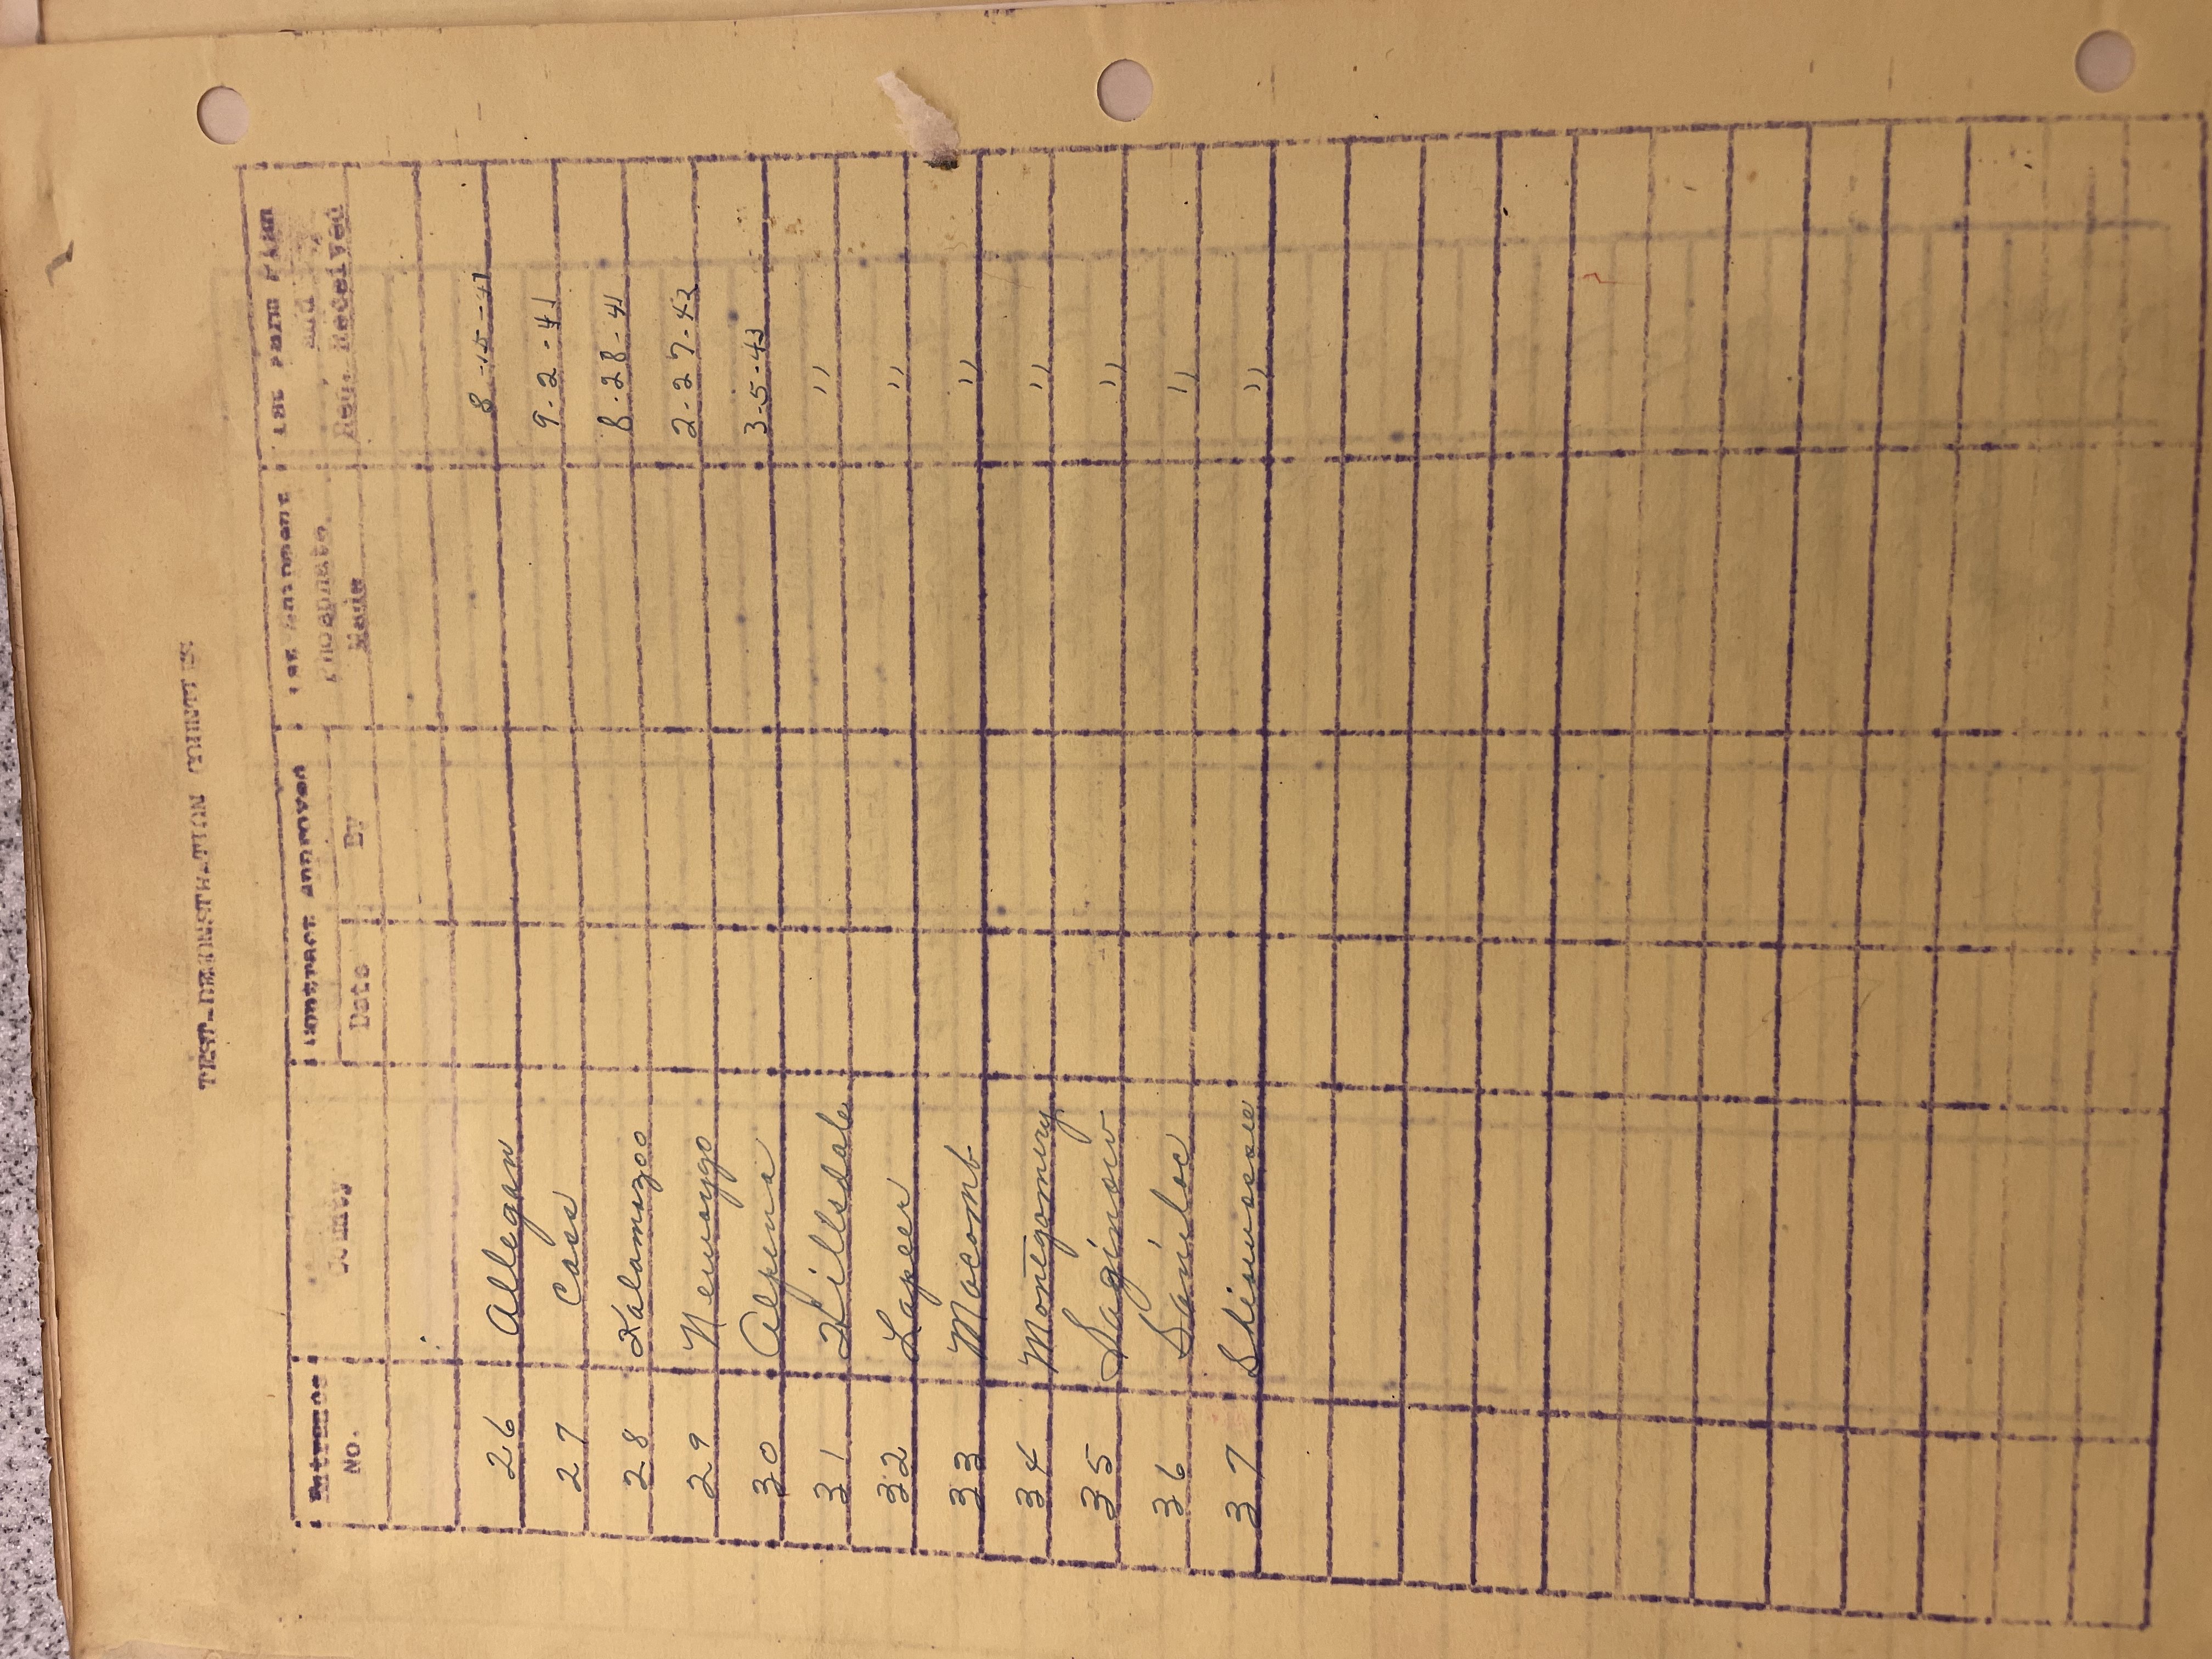 TEST-DEMONSTRATION COUNTIES
Entrance No. County Contract Approved Date By 1st Shipment Phosphate Made 1st Farm Plan and Req. Received
26 Allegan 8-15-41
27 Cass 9-2-41
28 Kalamazoo 8-28-41
29 Newaygo 2-27-42
30 Alpena 3-5-43
31 Hillsdale "
32 Lapeer "
33 Macomb "
34 Montgomery "
35 Saginaw "
36 Sanilac "
37 Shiawassee "